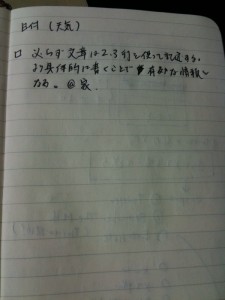 日付（天気）
□ 必らず文章は2.3行を使って記述する。
より具体的に書くことで 有即な情報と
なる。@家.